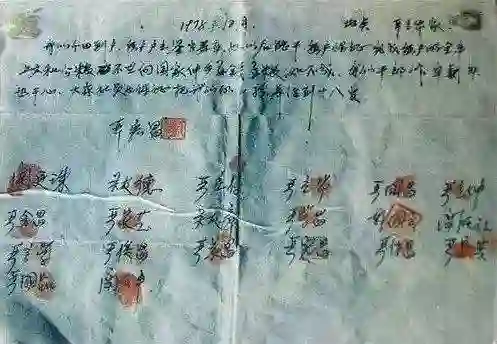 1978年12月 地点 严立华家
我们分田到户 每户户主签字盖章 如以后能干 每户保证完成每户的全年
上交和公粮 不在向国家伸手要钱要粮 如不成 我们干部作牢刹头
也干心 大家社员也保证把我们的小孩养活到十八岁
严宏昌
关廷珠 关友德 严立华 严国昌 严立坤
严金昌 严家芝 关友章 严学昌 关友江
严立学 严俊昌 严美昌
严国品 关友申